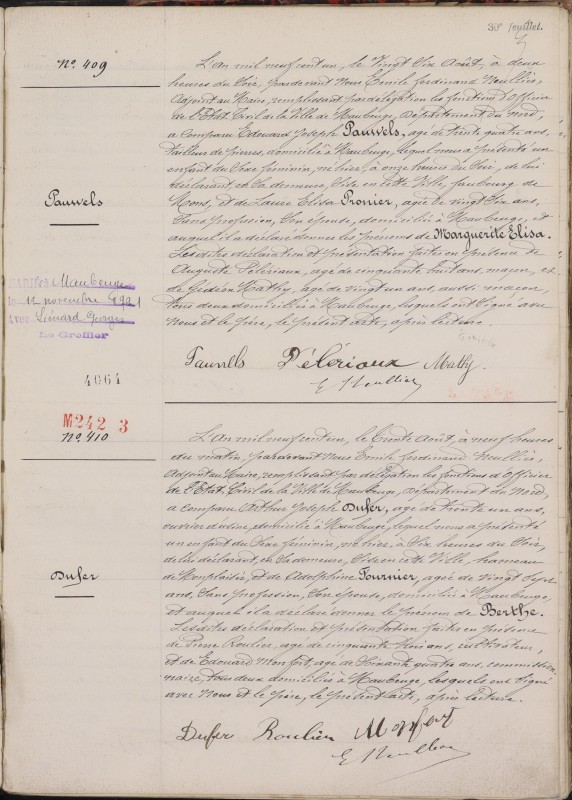 30e feuillet.
No. 409
L'An mil neuf cent un, le Vingt Six Août, à deux
heures du Soir, pardevant Nous Emile Ferdinand
Adjoint au Maire, remplissant par délégation les fonctions d'Officier
de l'Etat Civil de la Ville de Maubeuge, Département du Nord,
a comparu Edouard Joseph Pauwels, âgé de trente quatre ans,
tailleur de pierres, domicilié à Maubeuge, lequel nous a présenté un
enfant du Sexe féminin, né hier, à onze heures du Soir, de lui
déclarant, en Sa demeure, Sise en cette Ville, faubourg de
Mons, et de Laure Elisa Pronier, agée de vingt Six ans,
Sans profession, Son épouse, domiciliée à Maubeuge, et
auquel il a déclaré donner les prénoms de Marguerite Elisa.
Lesdites déclaration et présentation faites en présence de
Auguste Pélerioux, âgé de cinquante huit ans, maçon, et
de Gédéon Mathy, âgé de vingt un ans, aussi maçon,
tous deux domiciliés à Maubeuge, lesquels ont Signé avec
Nous et le père, le présent acte, après lecture.
Pauwels
MARIÉ(E) à Maubeuge
le 12 novembre 1921
Avec Liénard Georges
Le Greffier
4064
Pauwels Pélerioux Mathy
M242 3
No. 410
L'An mil neuf cent un, le Trente Août, à neuf heures
du matin, pardevant Nous Emile Ferdinand
Adjoint au Maire, remplissant par délégation les fonctions d'Officier
de l'Etat Civil de la Ville de Maubeuge, Département du Nord,
a comparu Arthur Joseph Dufer, âgé de trente un ans,
ouvrier d'usine, domicilié à Maubeuge, lequel nous a présenté
un enfant du Sexe féminin, né hier, à Six heures du Soir,
de lui déclarant, en Sa demeure, Sise en cette Ville, hameau
de Monplaisir, et de Adolphine Fournier, agée de vingt Sept
ans, Sans profession, Son épouse, domiciliée à Maubeuge,
et auquel il a déclaré donner le prénom de Berthe.
Lesdites déclaration et présentation faites en présence
de Pierre Roulier, âgé de cinquante trois ans, cultivateur,
et de Edouard Monfort, âgé de Soixante quatre ans, commission
naire, tous deux domiciliés à Maubeuge, lesquels ont Signé
avec Nous et le père, le présent acte, après lecture.
Dufer
Dufer Roulier Monfort